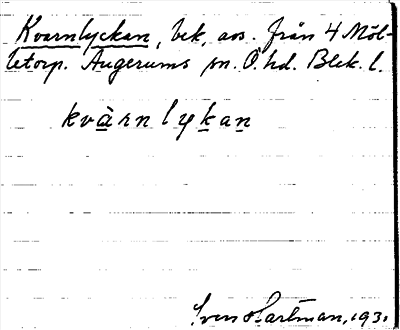 Kvarnlyckan, bek. aos. från 4 Möl-
letorp. Augerums sn. Ö. hd. Blek. l.
kvàrnlykan
Sven Hartman, 193.